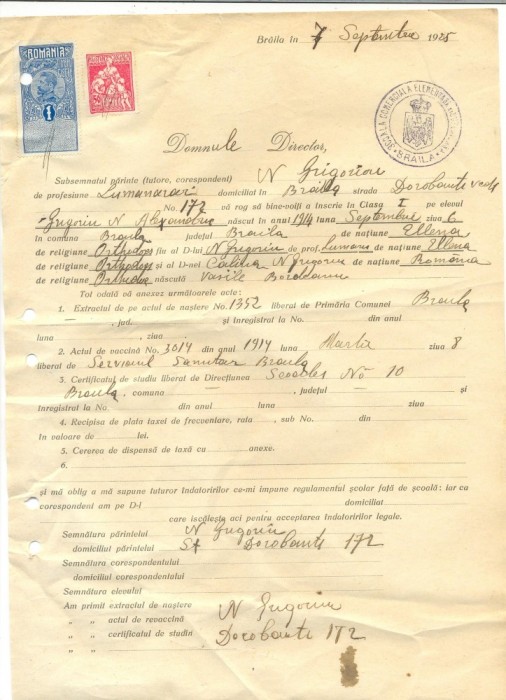 Brăila în 7 Septembrie 1925
ROMANIA
1
ȘCOALA COMERCIALĂ ELEMENTARĂ
BRAILA
Domnule Director,
Subsemnatul părinte (tutore, corespondent) N Grigoriu
de profesiane Lumanarar domiciliat în Braila strada Dorobanti
No. 172 vă rog să bine-voiți a înscrie în Clasa I pe elevul
Grigoriu N Alexandru născut în anul 1914 luna Septembrie ziua 6
în comuna Braila județul Braila de națiune Ellena
de religiune Orthodox fiu al D-lui N Grigoriu de prof. Luman de națiune Ellena
de religiune Orthodox și al D-nei N Grigoriu de națiune Romănă
de religiune Orthodox născută Vasile
Tot odată vă anexez următoarele acte:
1. Extractul de pe actul de naștere No. 1352 liberat de Primăria Comunei Braila
jud. și înregistrat la No. din anul
luna ziua
2. Actul de vaccină No. 3014 din anul 1914 luna Martie ziua 8
liberat de Serviciul Sanitar Braila
3. Certificatul de studiu liberat de Direcțiunea Scoales No 10
Braila, comuna județul și
înregistrat la No. din anul luna ziua
4. Recipisa de plata taxei de frecventare, rata sub No. din
în valoare de lei.
5. Cererea de dispensă de taxă cu anexe.
6.
și mă oblig a mă supune tuturor îndatoririlor ce-mi impune regulamentul școlar față de școală: iar cu
corespondent am pe D-l domiciliat
care iscălește aci pentru acceptarea îndatoririlor legale.
Semnătura părintelui N Grigoriu
domiciliul părintelui St Dorobanti 172
Semnătura corespondentului
domiciliul corespondentului
Semnătura elevului
Am primit extractul de naștere N Grigoriu
" " actul de revaccină
" " certificatul de studiu Dorobanti 172